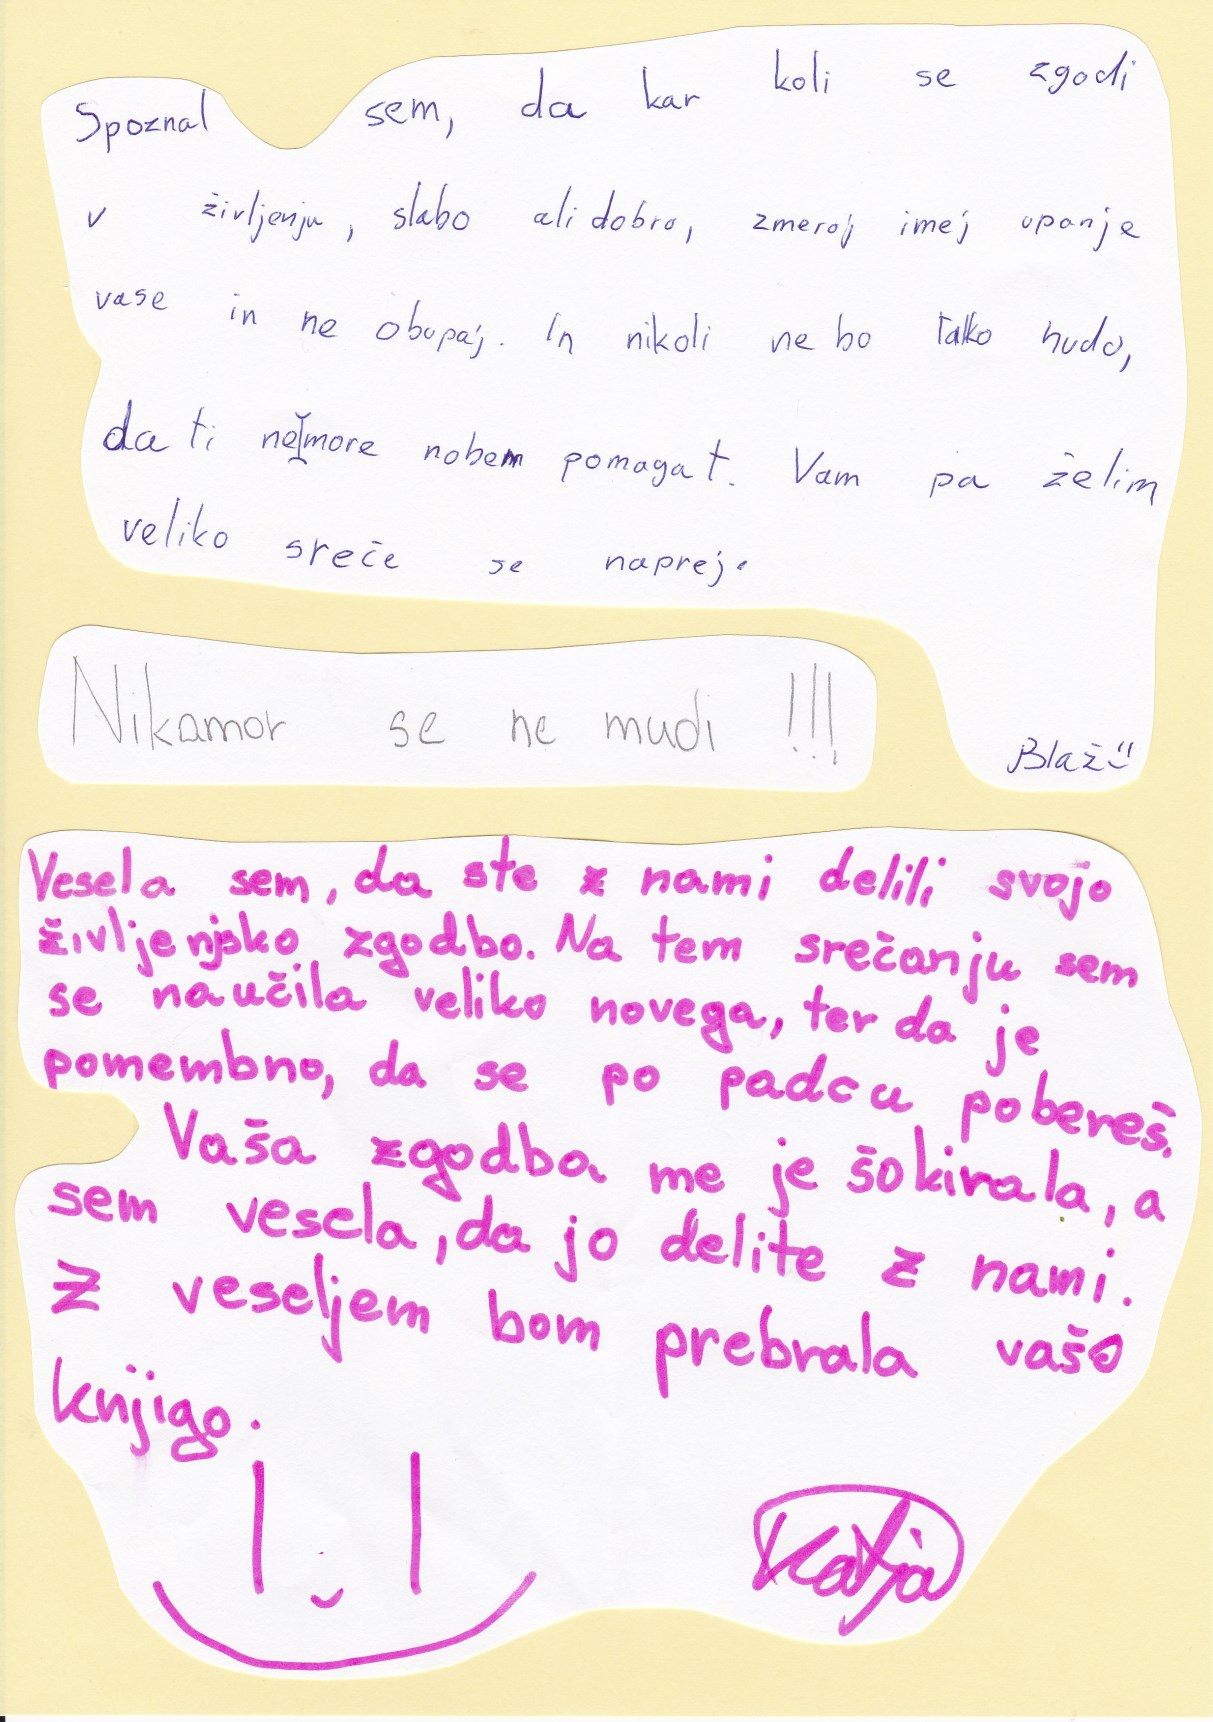 Spoznal sem, da kar koli se zgodi
v življenju, slabo ali dobro, zmeraj imej upanje
vase in ne obupaj. In nikoli ne bo tako hudo,
da ti ne more nobem pomagat. Vam pa želim
veliko sreče se naprej.
Blaž
Nikamor se ne mudi !!!
Vesela sem, da ste z nami delili svojo
življenjsko zgodbo. Na tem srečanju sem
se naučila veliko novega, ter da je
pomembno, da se po padcu pobereš.
Vaša zgodba me je šokirala, a
sem vesela, da jo delite z nami.
Z veseljem bom prebrala vašo
knjigo.
Katja